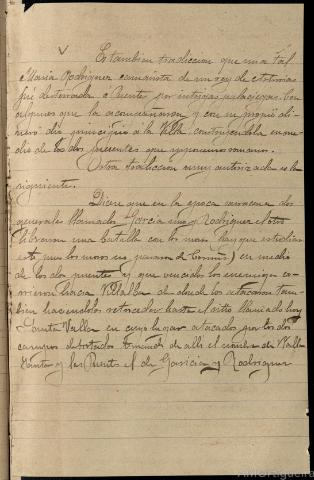 Es tambien tradicion que una tal
Maria Rodriguez camarista de un rey de Asturias
fué desterrada a Puentes por intrigas palaciegas. Con
algunos que la acompañaron y con su propio di-
nero dió principio á la Villa construyendola en me-
dio de los dos puentes que suponemos romanos.
Ostra tradicion muy autorizada es la
siguiente.
Dicese que en la epoca sarracena dos
generales llamados Garcia uno y Rodriguez el otro
libraron una batalla con los moros (hay que estudiar
esto pues los moros no pasaron de ) en medio
de los dos puentes y que vencidos los enemigos co-
rrieron hacia Villalba de donde los atacaron tam-
bien haciendoles retroceder hasta el sitio llamado hoy
Santa Valla en cuyo lugar atacados por los dos
campos derrotados tomando de alli el nombre de Valla
Santa y las Puentes el de Garcia y Rodriguez
AMOrtigueira